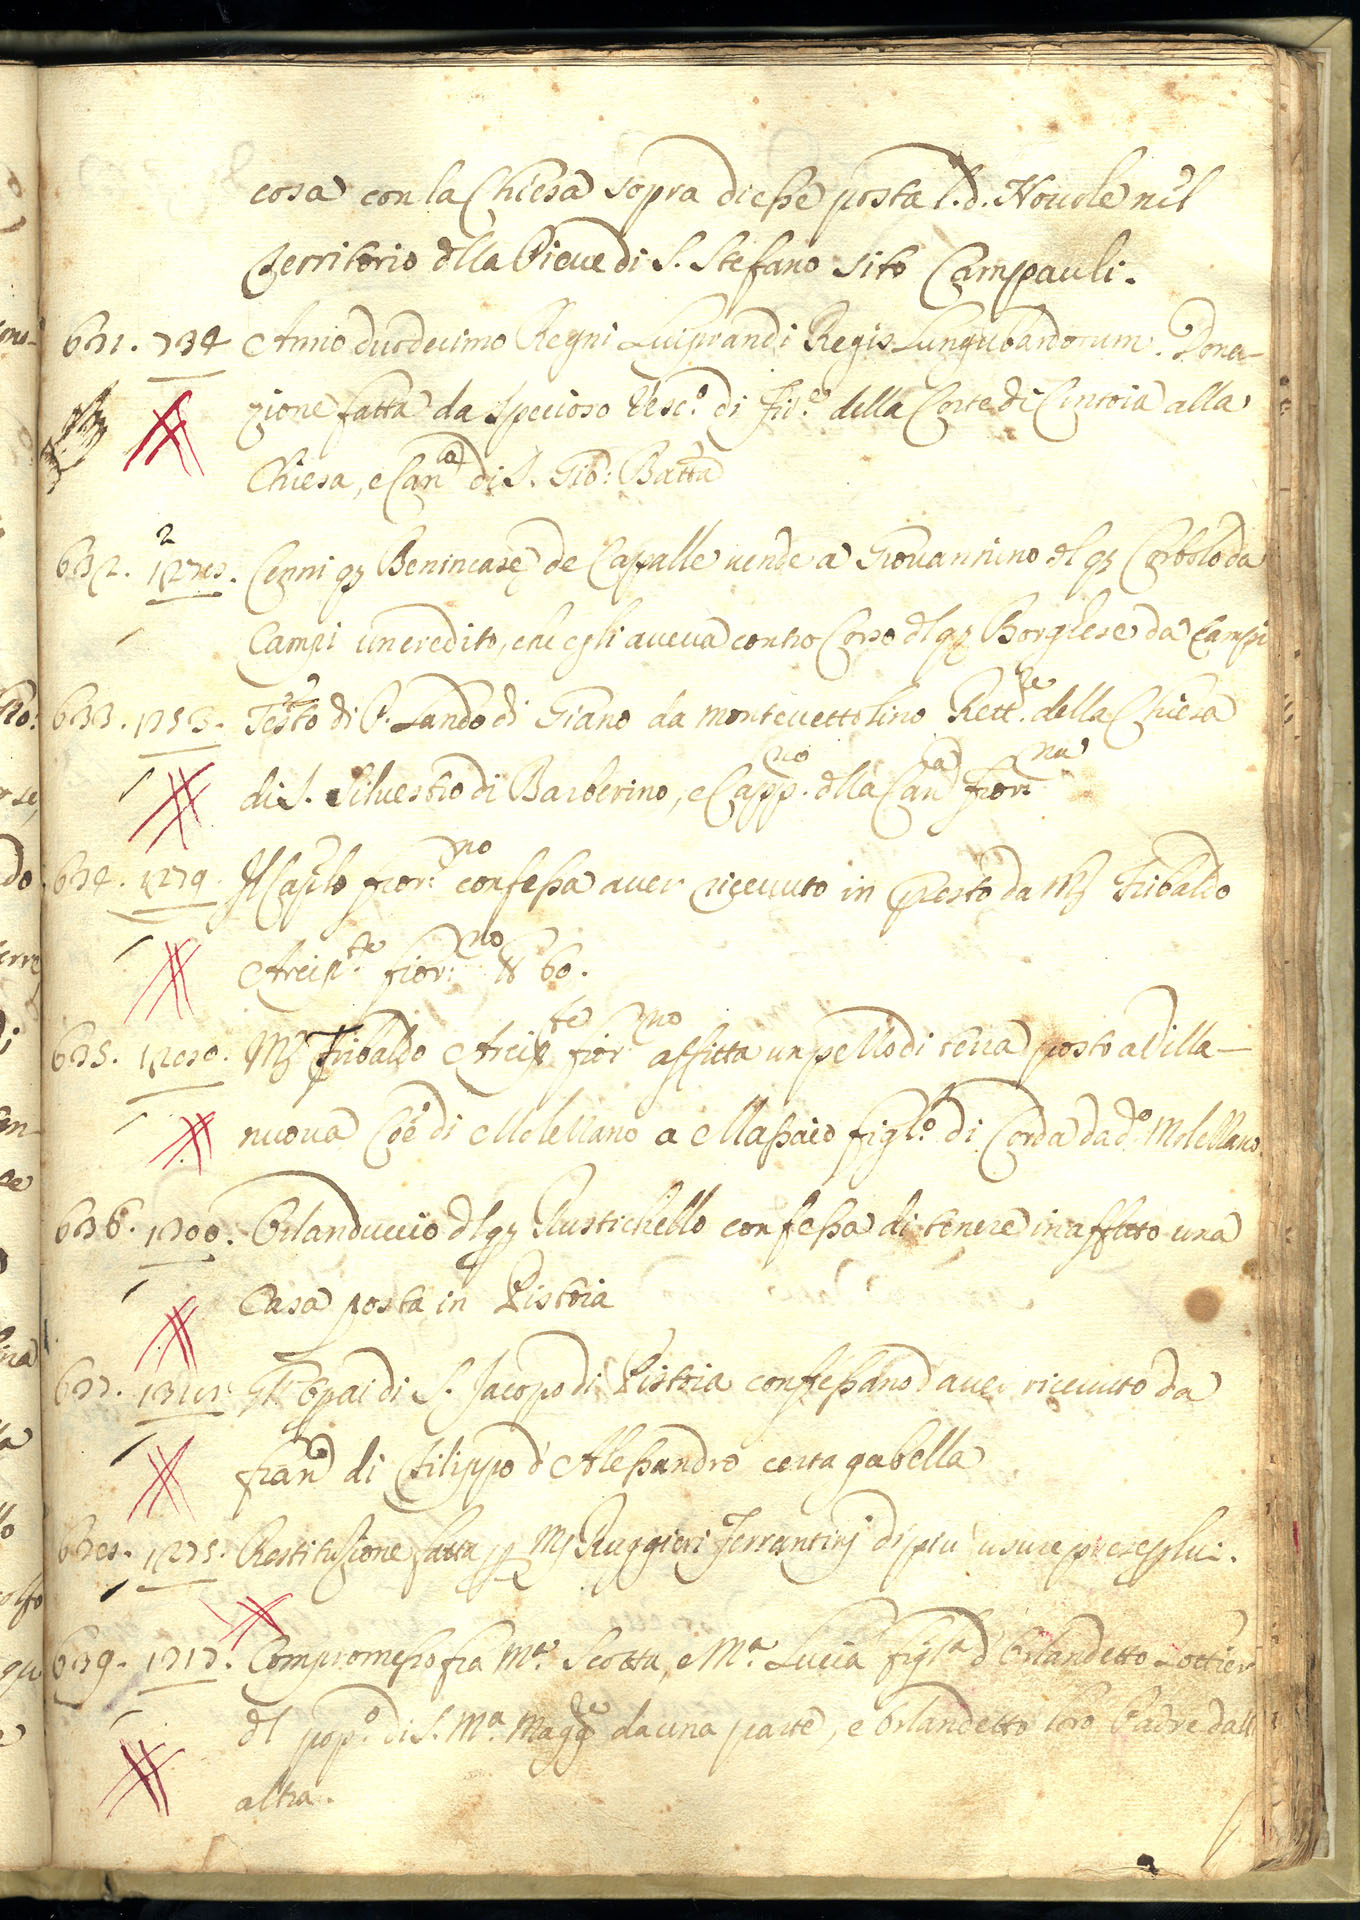 cosa con la Chiesa sopra di esse posta l. d. Novole nel
Territorio dlla Pieve di S. Stefano sito Campauli.
631. 724 Anno duodecimo Regni Luiprandi Regis Lungubardorum. Dona-
zione fatta da Specioso Vesc.º di Fir.e della Corte di Cintoia alla
Chiesa, e Can.a di S. Gio: Batta
632. Cenni q3 Benincase de Capalle vende a Giovannino dl q3 Corbolo da
Campi un credito, che egli aveva contro Corso dl q3 Borghese da Campi
633. 1353. Testo di P. Lando di Giano da Montevettolino Rett.re della Chiesa
di S. Silvestro di Barberino, e Capp.no dlla Can.a fior.na
634. 1279. Il Caplo fior.no confessa aver ricevuto in presto da Mſ Tribaldo
Arcip.te fior.no 60.
635. 1280. Mſ Tribaldo Arcip.te fior.no affitta un pezzo di terra posto a Villa-
nuova Coe di Molezzano a Massaio figl.º di Corda da d.º Molezzano.
636. 1300. Orlanduccio dl q3 Rustichello confessa di tenere in affitto una
Casa posta in Pistoia
637. Gli Opai di S. Jacopo di Pistoia confessano d'aver ricevuto da
Fran.co di Filippo d'Alessandro certa gabella
638. 1275. Restituzione fatta p Mſ Ruggieri Ferrantinj di più usure prese p lui.
639. 1313. Compromesso fra M.a Scotta, e M.a Lucia figl.a d'Orlandetto Lottieri
dl pop.º di S. M.a Magg.re da una parte, e Orlandetto loro Padre dall
altra.